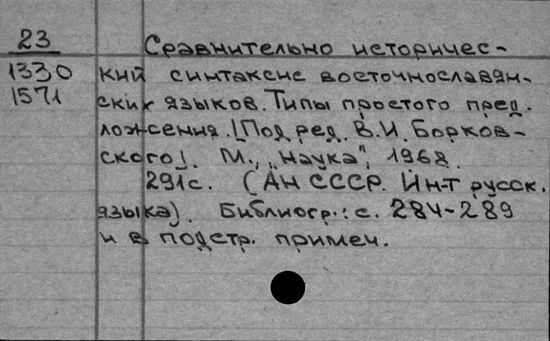 23 Сравнительно историчес-
1330 кий синтаксис восточнославян-
1571 ских языков. Типы простого пред.
ложения. [Под ред. В.И. Борков-
ского]. М., "Наука", 1968.
291с. (АН СССР. Ин-т русск.
языка). Библиогр.: с. 284-289
и в подстр. примеч.